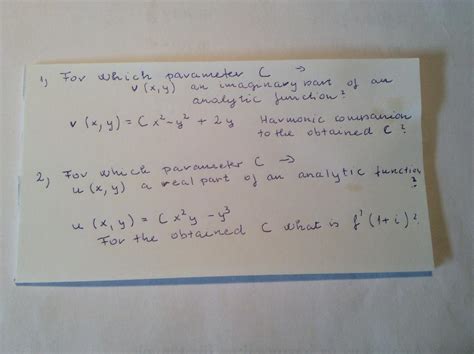 1) For which parameter C →
v(x,y) an imaginary part of an
analytic function?
v(x,y) = Cx²-y² + 2y Harmonic companion
to the obtained C?
2) For which parameter C →
u(x,y) a real part of an analytic function?
u(x,y) = Cx²y - y³
For the obtained C what is f'(1+i)?